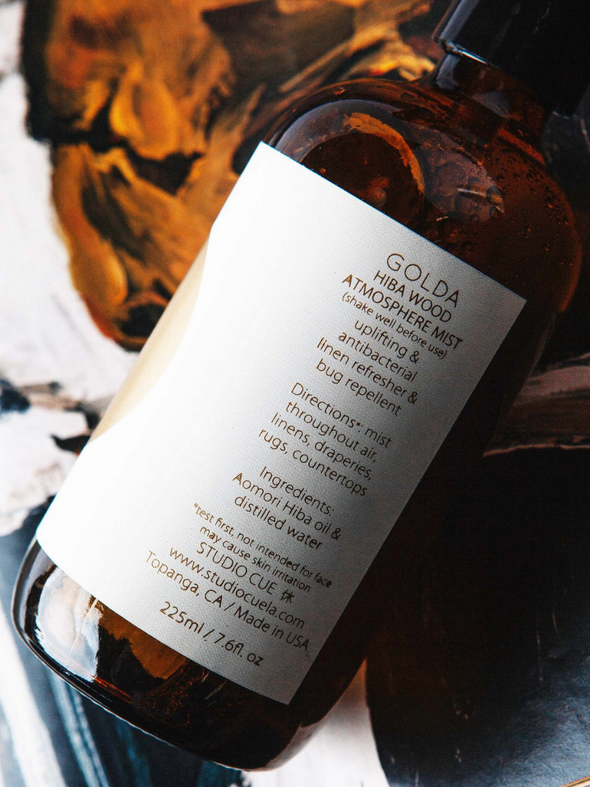 GOLDA
HIBA WOOD
ATMOSPHERE MIST
(shake well before use)
uplifting &
antibacterial
linen refresher &
bug repellent
Directions*: mist
throughout air,
linens, draperies,
rugs, countertops
Ingredients:
Aomori Hiba oil &
distilled water
*test first, not intended for face
may cause skin irritation
STUDIO CUE 休
www.studiocuela.com
Topanga, CA / Made in USA
225ml / 7.6fl. oz